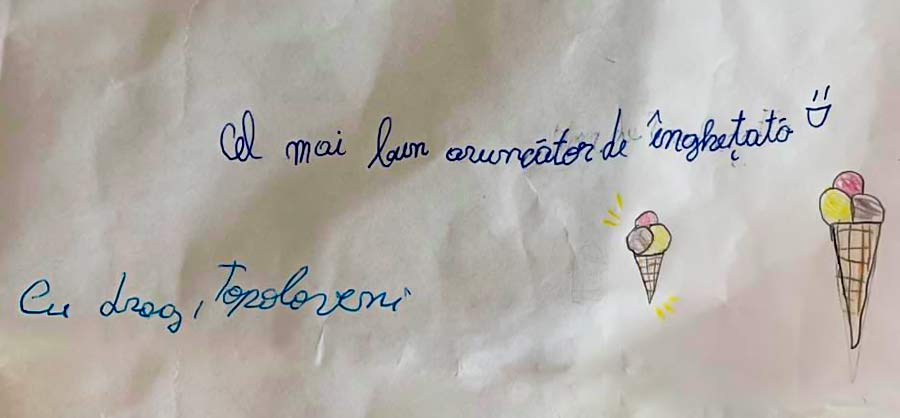 Cel mai bun aruncător de înghețată
Cu drag, Topoloveni